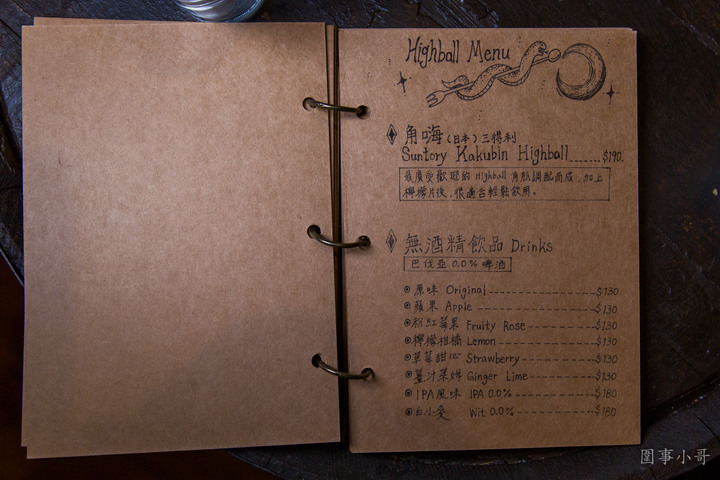 Highball Menu
角嗨(日本)三得利
Suntory Kakubin Highball......$190.
最廣受歡迎的 Highball 角瓶調配而成,加上
檸檬片後,很適合輕鬆飲用。
無酒精飲品 Drinks
巴伐亞 0.0% 啤酒
原味 Original $130
蘋果 Apple $130
粉紅莓果 Fruity Rose $130
檸檬柑橘 Lemon $130
草莓甜心 Strawberry $130
薑汁萊姆 Ginger Lime $130
IPA風味 IPA 0.0% $180
白小麥 Wit 0.0% $180
圍事小哥